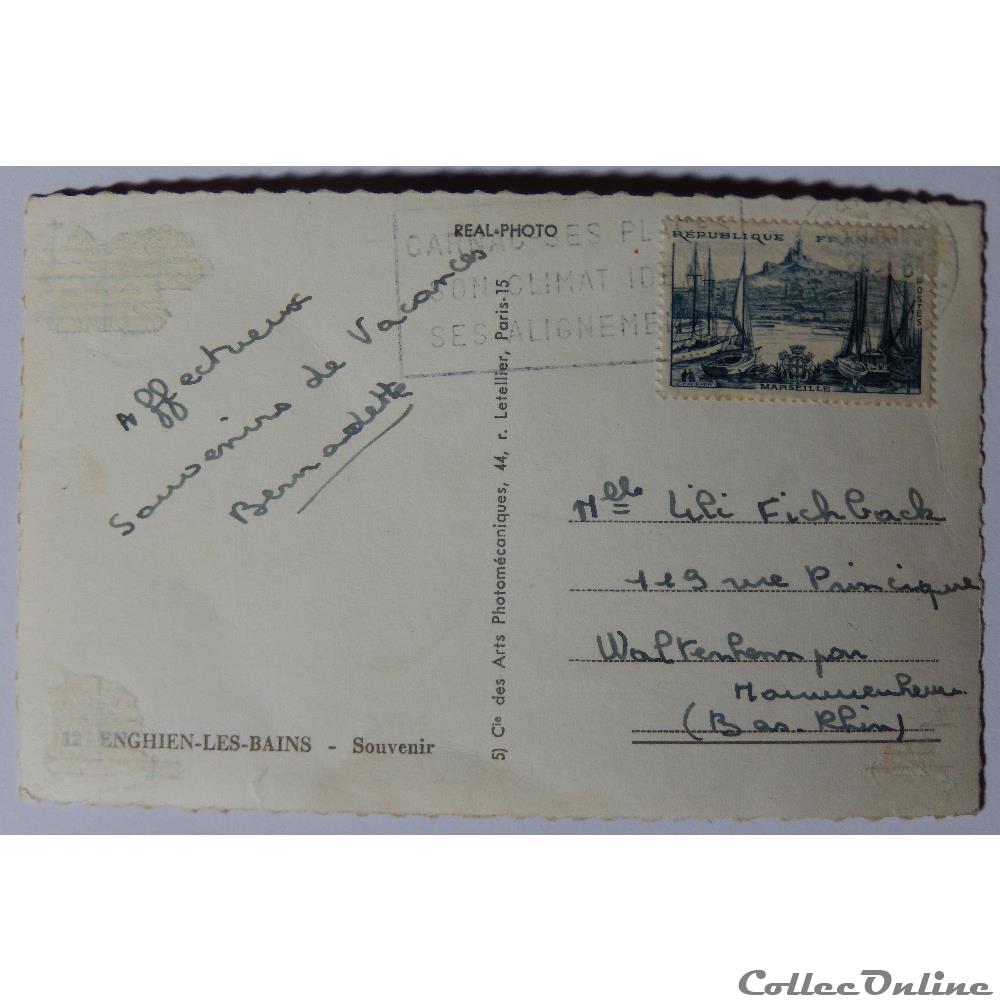 REAL-PHOTO
CARNAC-SES PL
SON CLIMAT IDE
SES ALIGNEME
RÉPUBLIQUE FRANÇAISE
POSTES
MARSEILLE
Affectueux
Souvenirs de Vacances
Bernadette
5) Cie des Arts Photomécaniques, 44, r. Letellier, Paris-15
Mlle Lili Fichback
119 rue Principue
Waltenhenn par
Hommenheim
(Bas-Rhin)
12 ENGHIEN-LES-BAINS - Souvenir
CollecOnline